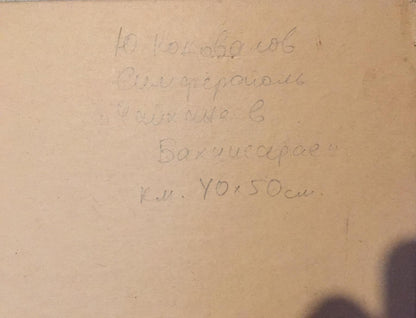 Ю. Коковалов
Симферополь
"Чайхана в
Бахчисарае"
к.м. 40х50см.